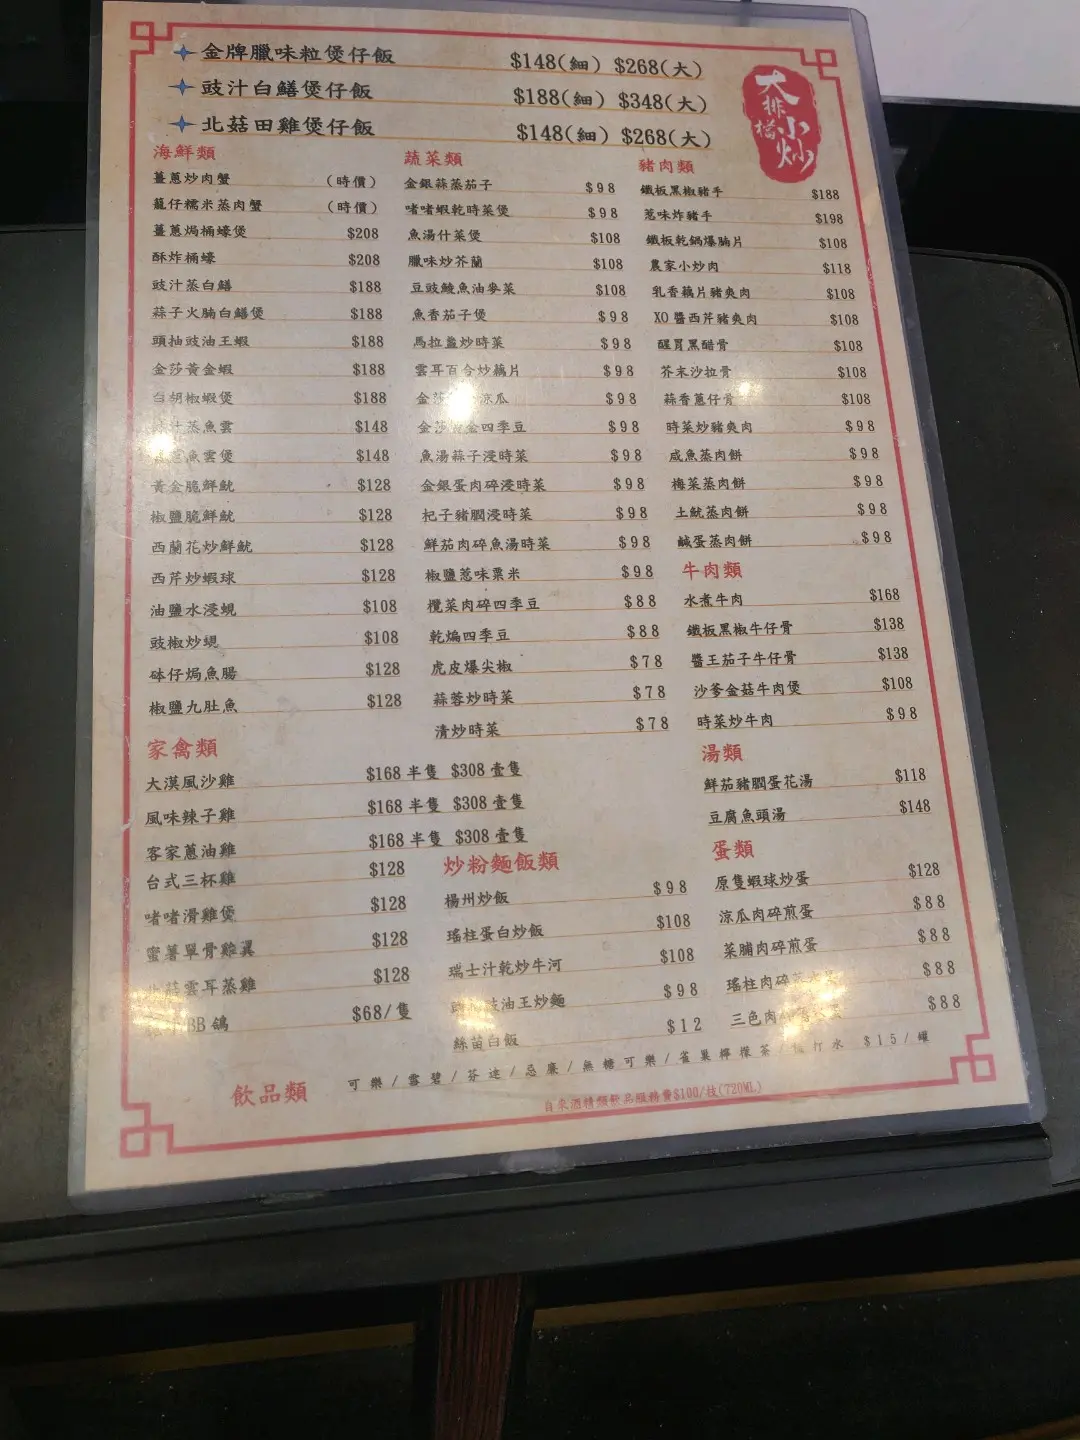 金牌臘味粒煲仔飯 $148(細) $268(大)
豉汁白鱔煲仔飯 $188(細) $348(大)
北菇田雞煲仔飯 $148(細) $268(大)
大排檔小炒
海鮮類
薑蔥炒肉蟹 (時價)
籠仔糯米蒸肉蟹 (時價)
薑蔥焗桶蠔煲 $208
酥炸桶蠔 $208
豉汁蒸白鱔 $188
蒜子火腩白鱔煲 $188
頭抽豉油王蝦 $188
金莎黃金蝦 $188
白胡椒蝦煲 $188
汁蒸魚雲 $148
魚雲煲 $148
黃金脆鮮魷 $128
椒鹽脆鮮魷 $128
西蘭花炒鮮魷 $128
西芹炒蝦球 $128
油鹽水浸蜆 $108
豉椒炒蜆 $108
砵仔焗魚腸 $128
椒鹽九肚魚 $128
家禽類
大漠風沙雞 $168 半隻 $308 壹隻
風味辣子雞 $168 半隻 $308 壹隻
客家蔥油雞 $168 半隻 $308 壹隻
台式三杯雞 $128
啫啫滑雞煲 $128
蜜薯單骨雞翼 $128
北菇雲耳蒸雞 $128
BB 鴿 $68/隻
蔬菜類
金銀蒜蒸茄子 $98
啫啫蝦乾時菜煲 $98
魚湯什菜煲 $108
臘味炒芥蘭 $108
豆豉鯪魚油麥菜 $108
魚香茄子煲 $98
馬拉盞炒時菜 $98
雲耳百合炒藕片 $98
金莎 涼瓜 $98
金莎 金四季豆 $98
魚湯蒜子浸時菜 $98
金銀蛋肉碎浸時菜 $98
杞子豬膶浸時菜 $98
鮮茄肉碎魚湯時菜 $98
椒鹽蔥味粟米 $98
欖菜肉碎四季豆 $88
乾煸四季豆 $88
虎皮爆尖椒 $78
蒜蓉炒時菜 $78
清炒時菜 $78
炒粉麵飯類
楊州炒飯 $98
瑤柱蛋白炒飯 $108
瑞士汁乾炒牛河 $108
豉油王炒麵 $98
絲苗白飯 $12
豬肉類
鐵板黑椒豬手 $188
蔥味炸豬手 $198
鐵板乾鍋爆腩片 $108
農家小炒肉 $118
乳香藕片豬爽肉 $108
XO 醬西芹豬爽肉 $108
醒胃黑醋骨 $108
芥末沙拉骨 $108
蒜香蔥仔骨 $108
時菜炒豬爽肉 $98
咸魚蒸肉餅 $98
梅菜蒸肉餅 $98
土魷蒸肉餅 $98
鹹蛋蒸肉餅 $98
牛肉類
水煮牛肉 $168
鐵板黑椒牛仔骨 $138
醬王茄子牛仔骨 $138
沙爹金菇牛肉煲 $108
時菜炒牛肉 $98
湯類
鮮茄豬膶蛋花湯 $118
豆腐魚頭湯 $148
蛋類
原隻蝦球炒蛋 $128
涼瓜肉碎煎蛋 $88
菜脯肉碎煎蛋 $88
瑤柱肉碎 $88
三色肉 $88
飲品類
可樂/雪碧/芬達/忌廉/無糖可樂/雀巢檸檬茶/梳打水 $15/罐
自來酒精類飲品服務費$100/枝(720ML)